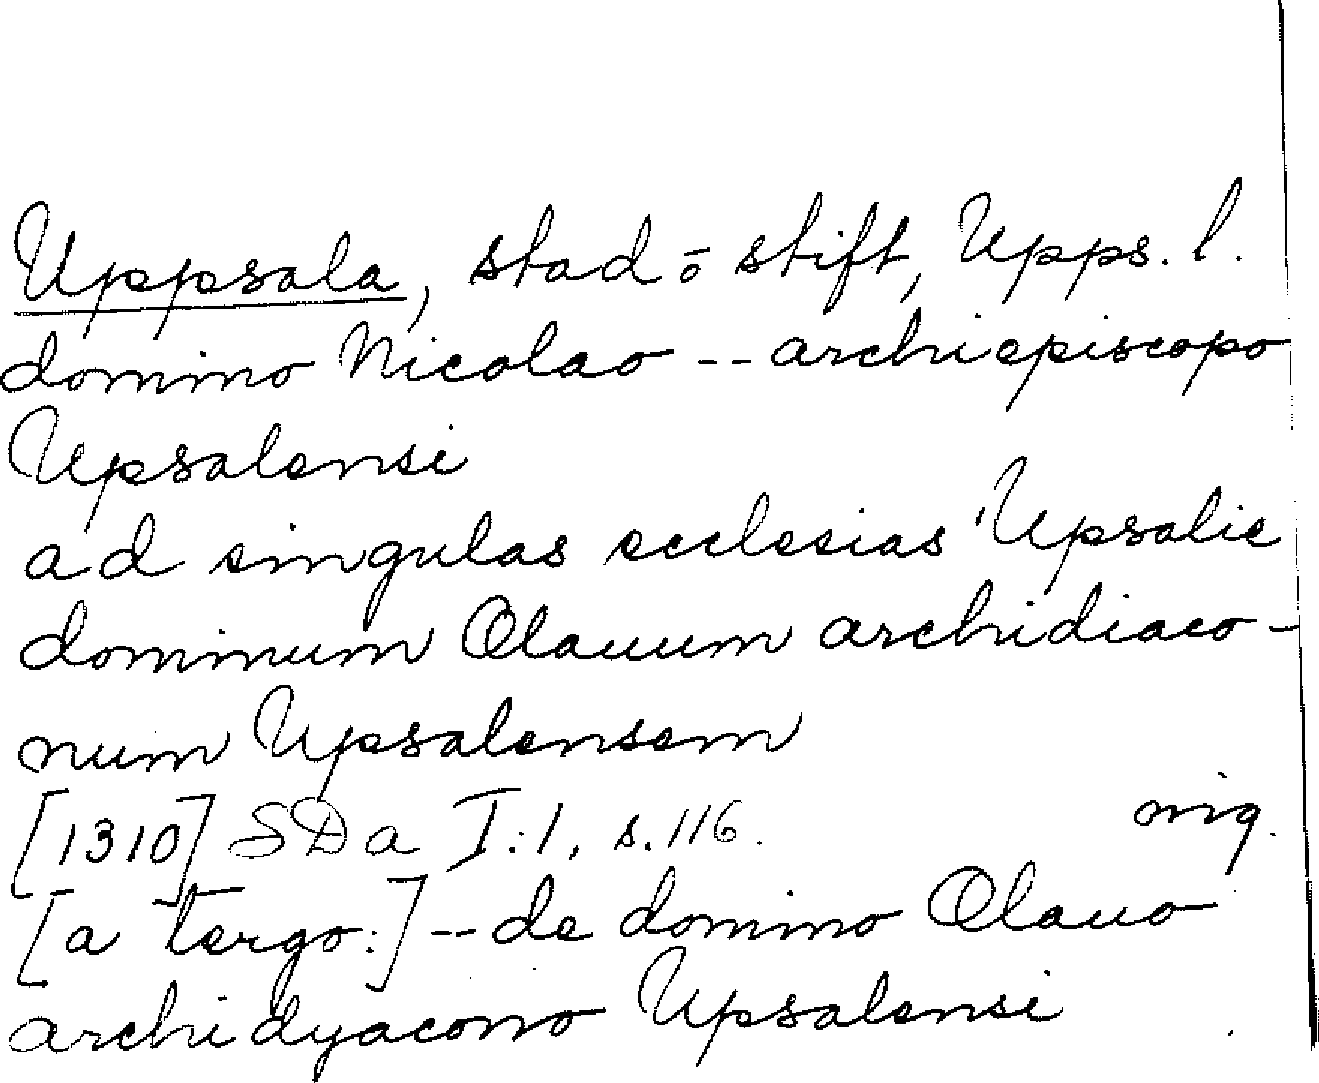 Uppsala, stad o stift, Upps. l.
domino Nicolao -- archiepiscopo
Upsalensi
ad singulas ecclesias Upsalie
dominum Olauum archidiaco-
num Upsalensem
[1310] SDa I:1, s.116. nig.
[a tergo:] -- de domino Olauo
archidyacono Upsalensi